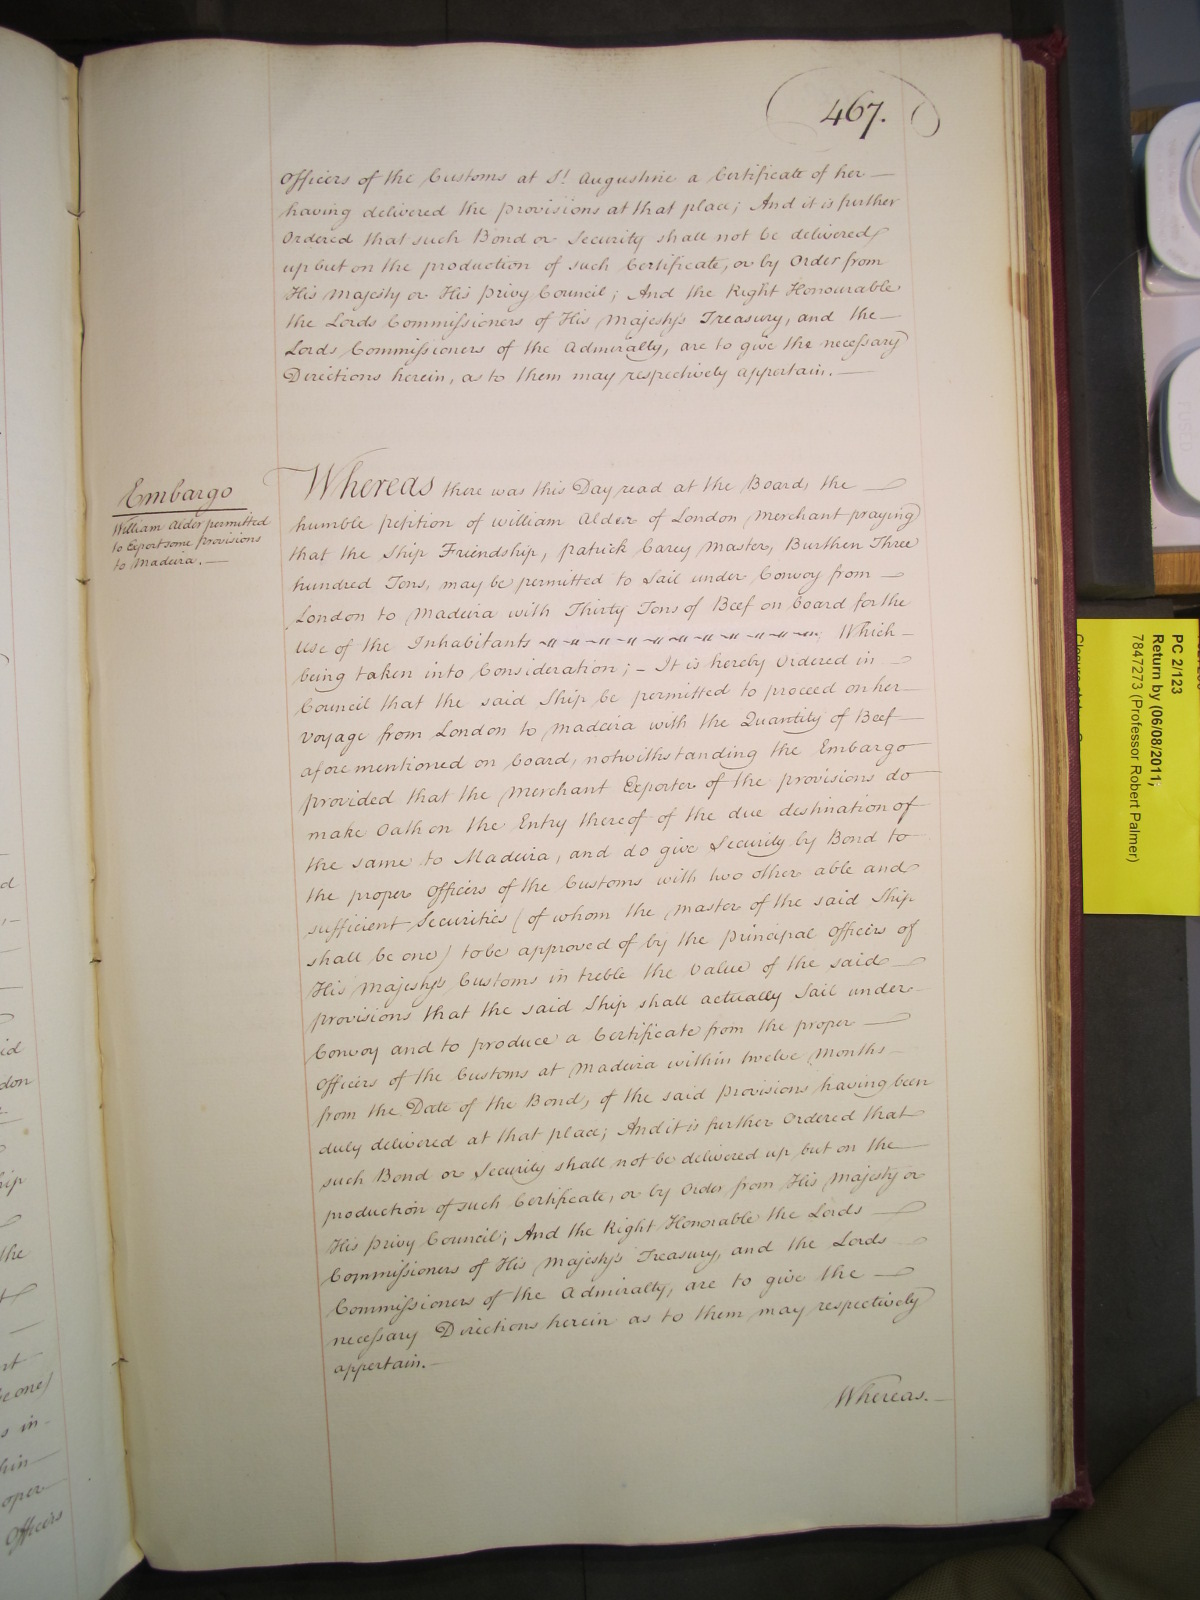 467.
Officers of the Customs at St. Augustine a Certificate of her
having delivered the Provisions at that place; And it is further
Ordered that such Bond or Security shall not be delivered
up but on the production of such Certificate, or by Order from
His Majesty or His Privy Council; And the Right Honourable
the Lords Commissioners of His Majesty's Treasury, and the
Lords Commissioners of the Admiralty, are to give the necessary
Directions herein, as to them may respectively appertain.
Embargo
William Alder permitted
to Export some provisions
to Madeira.
Whereas there was this Day read at the Board, the
humble petition of William Alder of London Merchant praying
that the Ship Friendship, Patrick Carey Master, Burthen Three
hundred Tons, may be permitted to Sail under Convoy from
London to Madeira with Thirty Tons of Beef on board for the
use of the Inhabitants Which
being taken into Consideration; - It is hereby Ordered in
Council that the said Ship be permitted to proceed on her
voyage from London to Madeira with the Quantity of Beef
aforementioned on board, notwithstanding the Embargo
provided that the Merchant Exporter of the provisions do
make Oath on the Entry thereof of the due destination of
the same to Madeira, and do give Security by Bond to
the proper Officers of the Customs with two other able and
sufficient Securities (of whom the Master of the said Ship
shall be one) to be approved of by the Principal Officers of
His Majesty's Customs in treble the value of the said
provisions that the said Ship shall actually Sail under
Convoy and to produce a Certificate from the proper
Officers of the Customs at Madeira within twelve Months
from the Date of the Bond, of the said Provisions having been
duly delivered at that place; And it is further Ordered that
such Bond or Security shall not be delivered up but on the
production of such Certificate, or by Order from His Majesty or
His Privy Council; And the Right Honorable the Lords
Commissioners of His Majesty's Treasury, and the Lords
Commissioners of the Admiralty, are to give the
necessary Directions herein as to them may respectively
appertain.
Whereas.
PC 2/123
Return by (06/08/2011;
7847273 (Professor Robert Palmer)